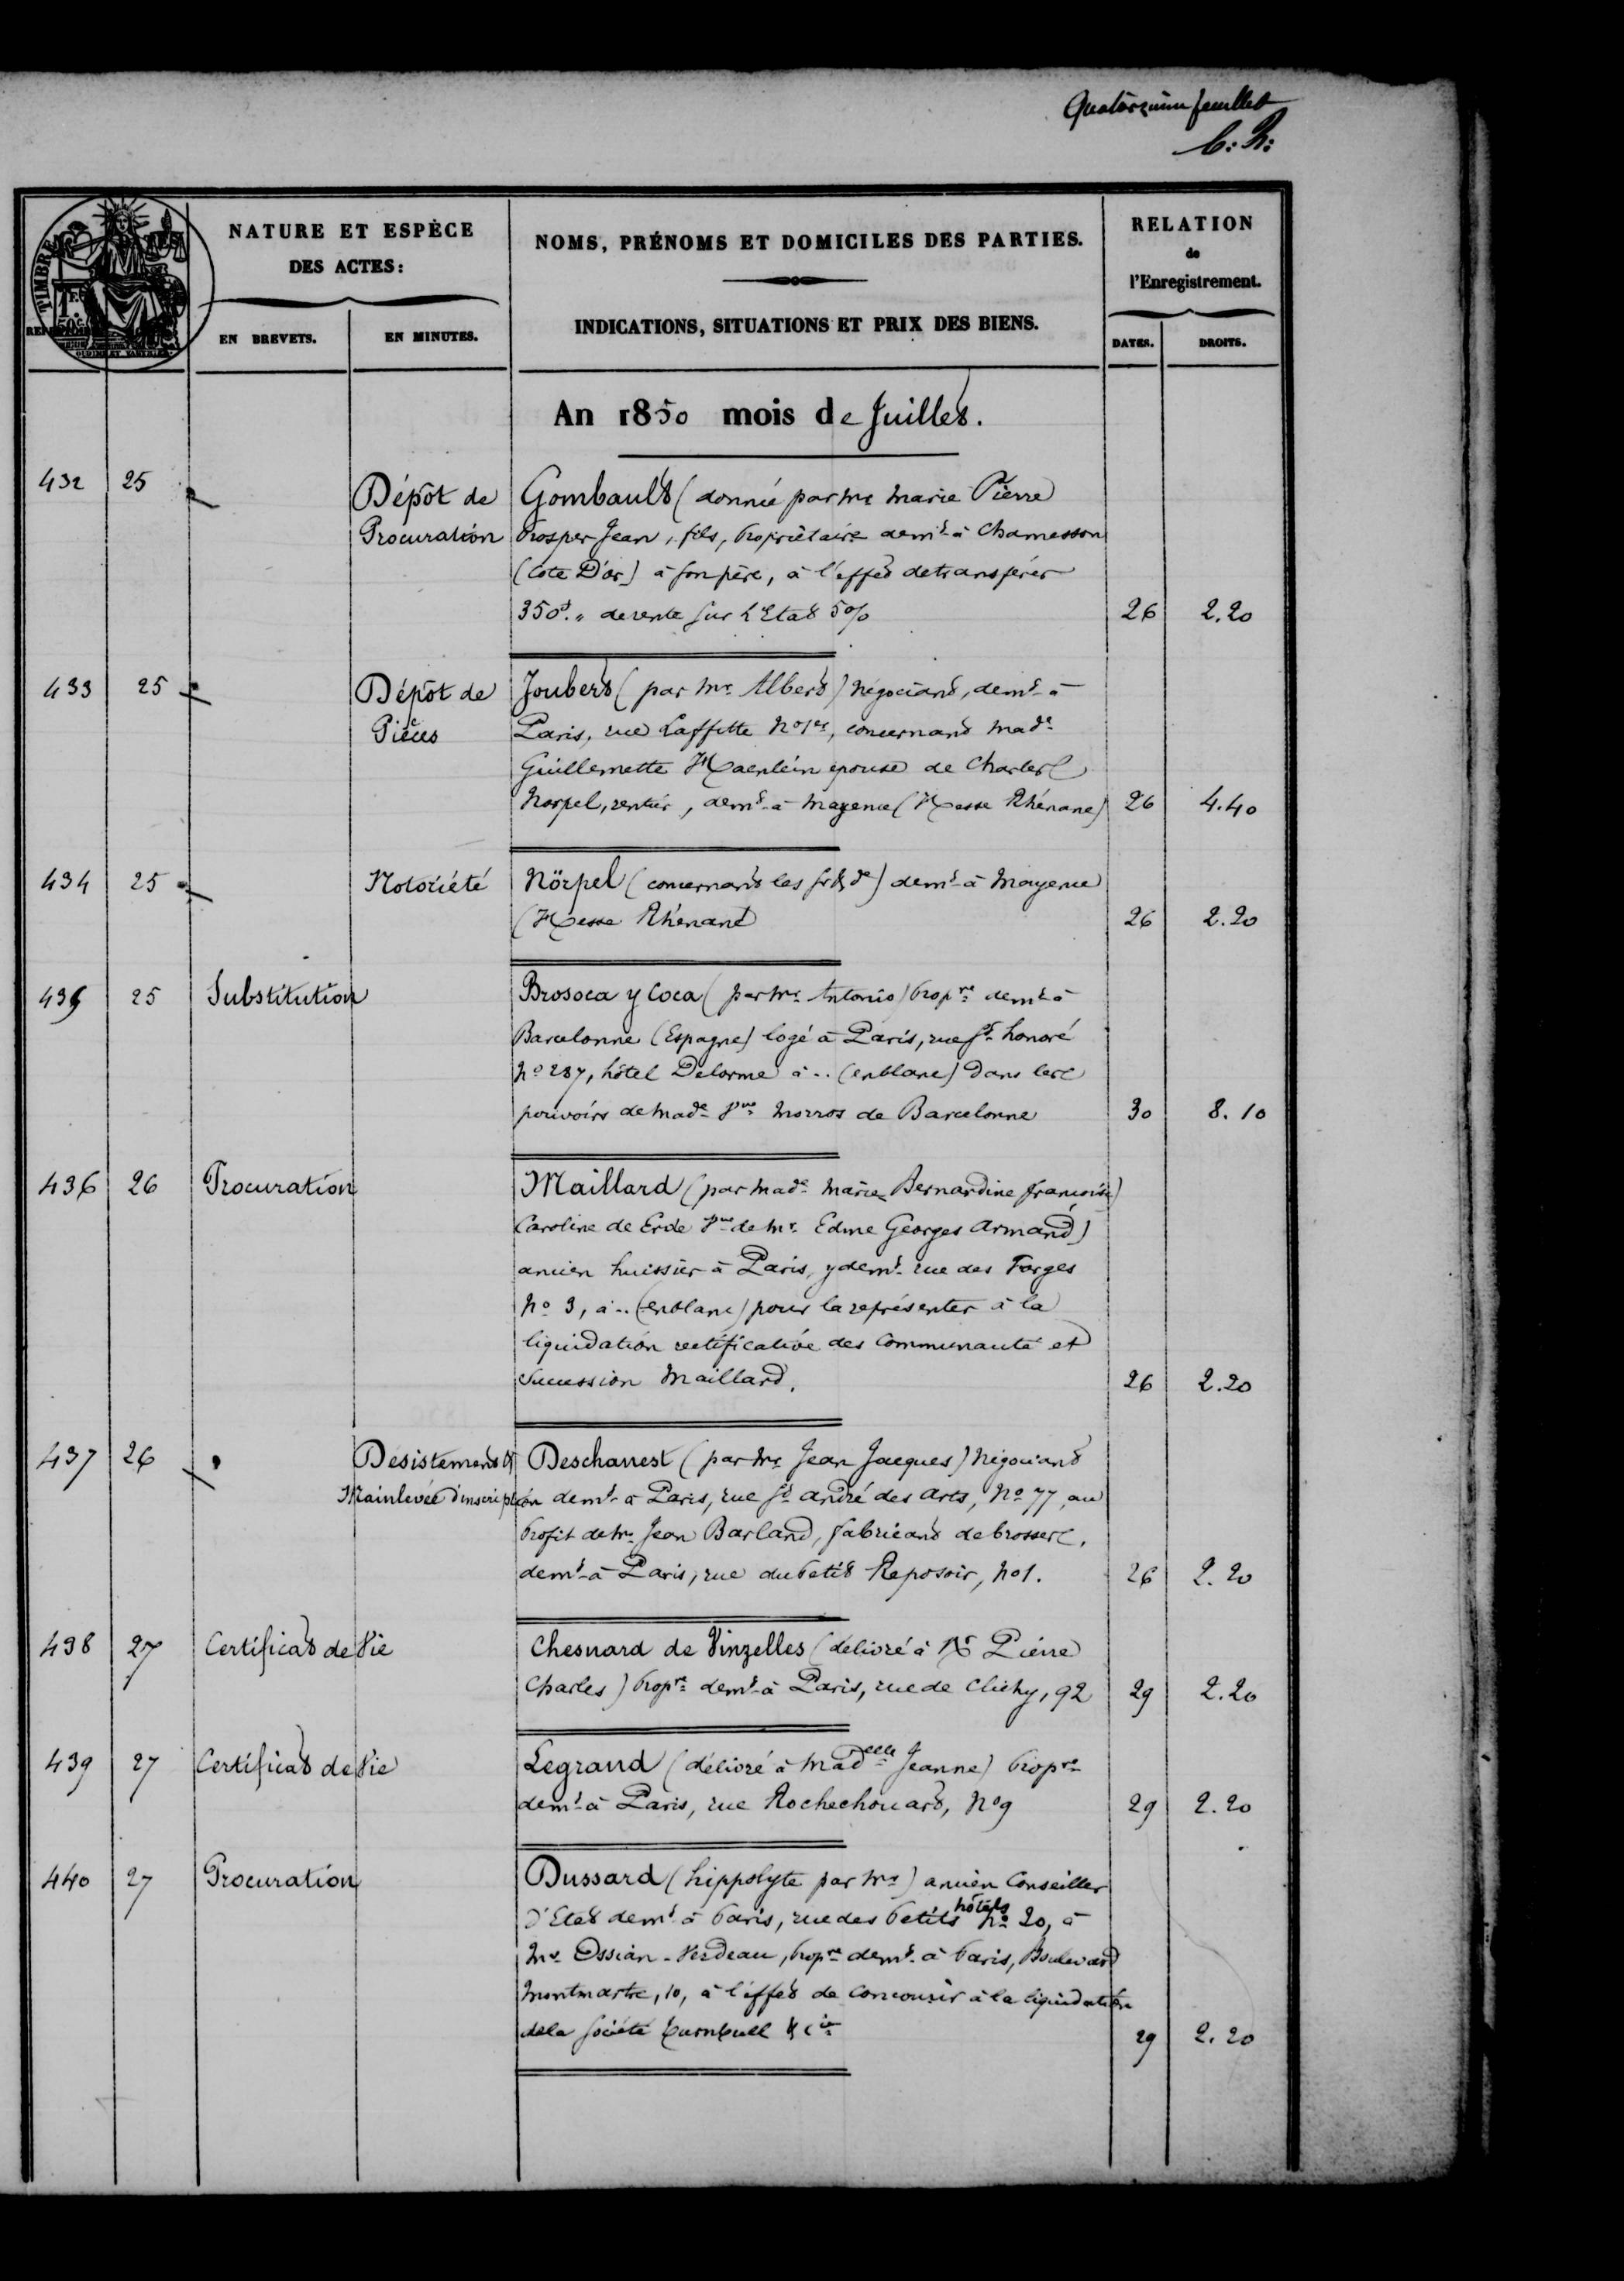 Quatorzième feuillet
C. R.
TIMBRE
NATURE ET ESPÈCE
DES ACTES:
EN BREVETS.
EN MINUTES.
NOMS, PRÉNOMS ET DOMICILES DES PARTIES.
INDICATIONS, SITUATIONS ET PRIX DES BIENS.
RELATION
de
l'Enregistrement.
DATES.
DROITS.
An 1850 mois de Juillet.
432 25 Dépôt de Gombault (donnée par Mr Marie Pierre
Procuration Prosper Jean, fils, propriétaire demt à Chamesson
(Côte D'or) à son père, à l'effet de transférer
350f. " de rente sur l'Etat 5% 26 2.20
433 25 Dépôt de Joubert (par Mr Albert) négociant, demt à
Pièces Paris, rue Laffitte No 1er, concernant made
Guillemette Haenlein épouse de Charles
Norpel, rentier, demt à Mayence (Hesse Rhénane) 26 4.40
434 25 Notoriété Nörpel (concernant les sr & de) demt à Mayence
(Hesse Rhénane 26 2.20
435 25 Substitution Brosoca y Coca (par Mr Antonio) propre demt à
Barcelonne (Espagne) logé à Paris, rue St honoré
No 287, hôtel Delorme à .. (en blanc) dans les
pouvoirs de Made Vve Morros de Barcelonne 30 8.10
436 26 Procuration Maillard (par made Marie Bernardine françoise
Caroline de Erde Vve de Mr Edme Georges Armand)
ancien huissier à Paris, y demt rue des Forges
No 3, à .. (en blanc) pour la représenter à la
liquidation rectificative des communauté et
Succession Maillard. 26 2.20
437 26 Désistement & Deschanest (par Mr Jean Jacques) négociant
Mainlevée d'inscription demt à Paris, rue St andré des Arts, No 77, au
profit de Mr Jean Barland, fabricant de brosses,
demt à Paris, rue du Petit Reposoir, No 1. 26 2.20
438 27 Certificat de Vie Chesnard de Vinzelles (délivré à Mr Pierre
Charles) propre demt à Paris, rue de Clichy, 92 29 2.20
439 27 Certificat de Vie Legrand (délivré à Madelle Jeanne) propre
demt à Paris, rue Rochechouart, No 9 29 2.20
440 27 Procuration Dussard (hippolyte par Mr) ancien Conseiller
D'Etat demt à Paris, rue des Petits hôtels No 20, à
Mr Ossian-Verdeau, propre demt à Paris, Boulevard
Montmartre, 10, à l'effet de concourir à la liquidation
de la société Turnbull & Cie 29 2.20